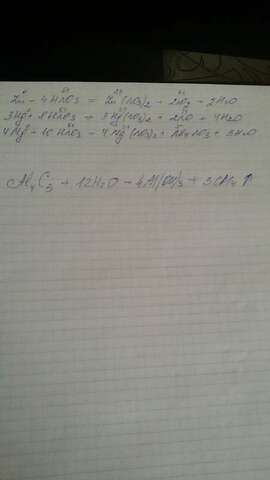 Zn + 4HNO3 = Zn(NO3)2 + 2NO2 + 2H2O
3Hg + 8HNO3 = 3Hg(NO3)2 + 2NO + 4H2O
4Mg + 10HNO3 = 4Mg(NO3)2 + NH4NO3 + 3H2O
Al4C3 + 12H2O → 4Al(OH)3 + 3CH4 ↑